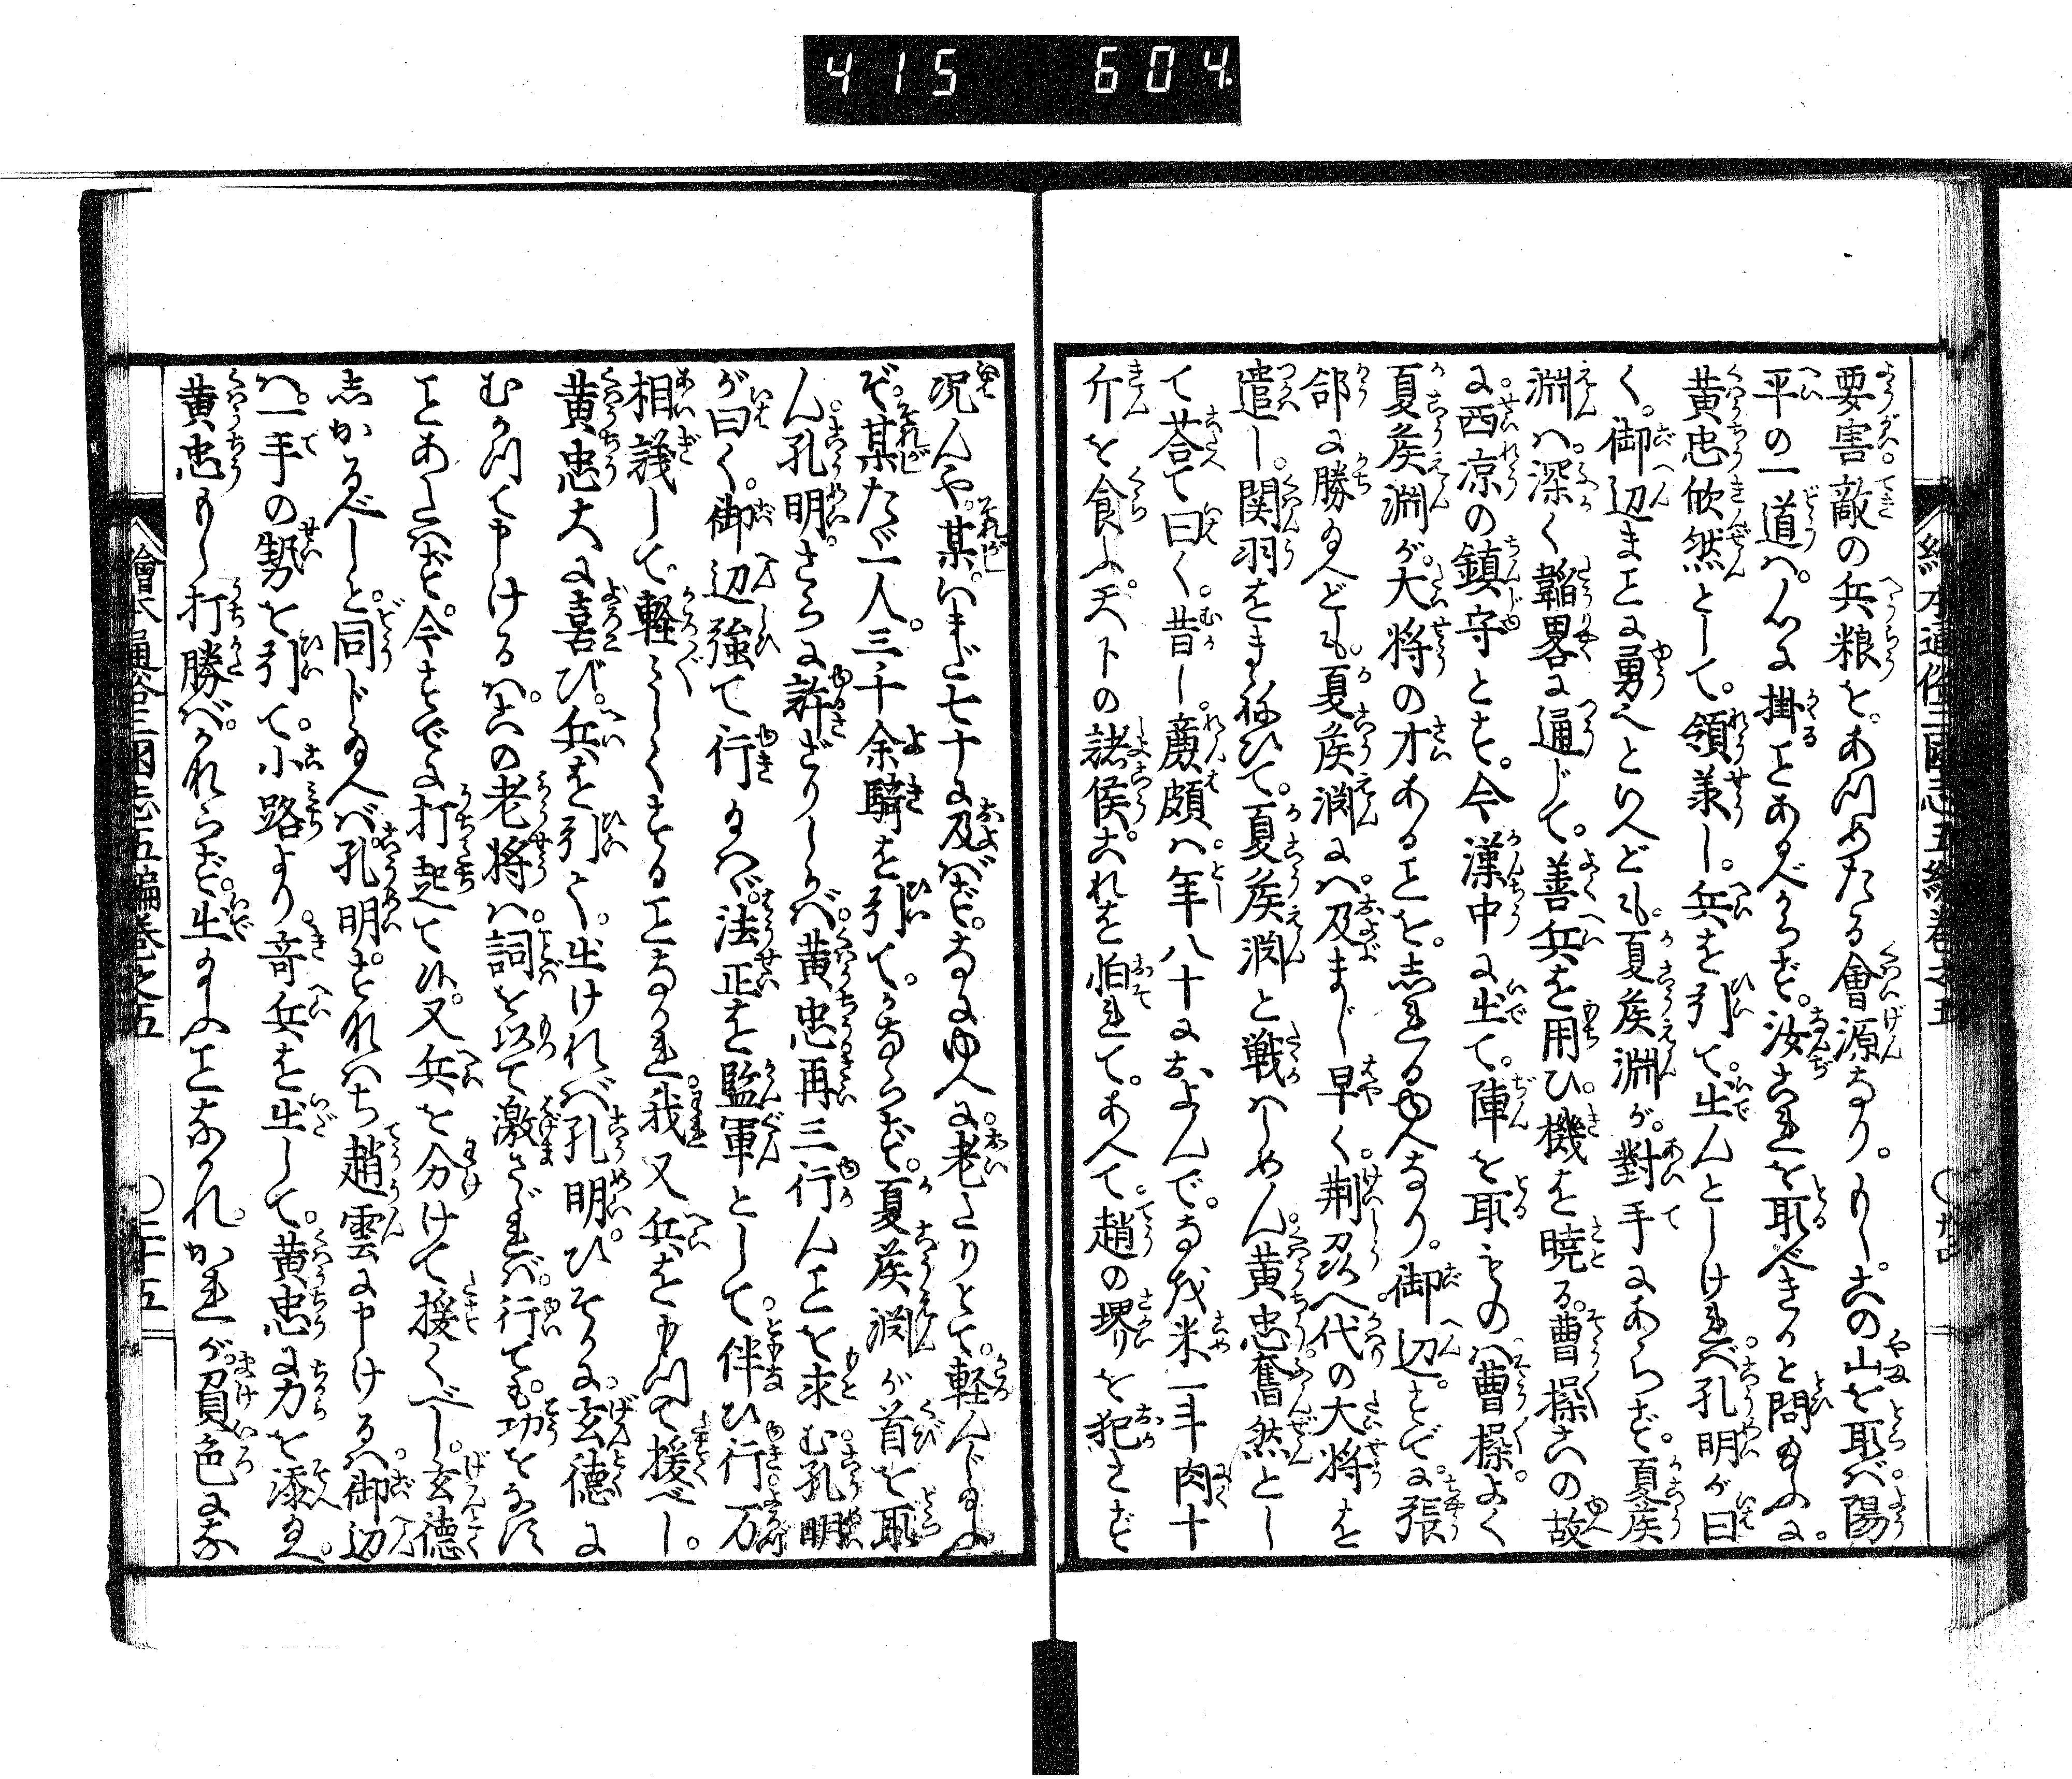 415 604
要害敵の兵粮を。あつめたる會源なり。もし。この山を取ば陽
平の一道ハ。心に掛ることあるべからず。汝これを取べきかと問給ふに。
黄忠欣然として。領羕し。兵を引て。出んとしければ孔明が曰
く。御辺まことに勇へといへども。夏侯淵が。對手にあらず。夏侯
淵ハ。深く韜畧に通じて。善兵を用ひ。機を暁る。曹操この故
に。西凉の鎮守とす。今漢中に出て。陣を取ものハ曹操。よく
夏侯淵が。大将の才あることを。しれるゆへなり。御辺。すでに。張
郃に勝給へども。夏侯淵にハ及まじ早く。荆州へ代の大将を
遣し。関羽をまねひて。夏侯淵と戦ハしめん。黄忠奮然とし
て荅て曰く。昔し。廉頗ハ。年八十におよんで。なを米一斗肉十
斤を食ふ。天下の諸侯。これを怕れて。あへて。趙の堺を犯さず
况んや。某。いまだ七十に及ばず。なにゆへに。老たりとて。軽んじ給ふ
ぞ。某たゞ一人。三千余騎を引て。かならず。夏侯淵が首を取
ん。孔明。さらに許ざりしかば。黄忠再三行んことを求む。孔明
が曰く。御辺強て行給ハヾ。法正を監軍として。伴ひ行。万
相議して。軽々しくすることなかれ。我又兵をもつて援べし。
黄忠大に喜び。兵を引て。出ければ孔明。ひそかに。玄德に
むかつて申けるハ。この老将ハ。詞を以て激さゞれば。行ても。功をなす
ことあたハず。今すでに打起て候。又兵を分けて援くべし。玄德
しかるべしと。同じ給へば。孔明。すなハち趙雲に申けるハ。御辺
ハ。一手の㔟を引て。小路より。竒兵を出して。黄忠に力を添給へ。
黄忠もし打勝ば。かならず。出給ふことなかれ。かれが負色にな
繪本通俗三國志五編巻之五
〇二十五